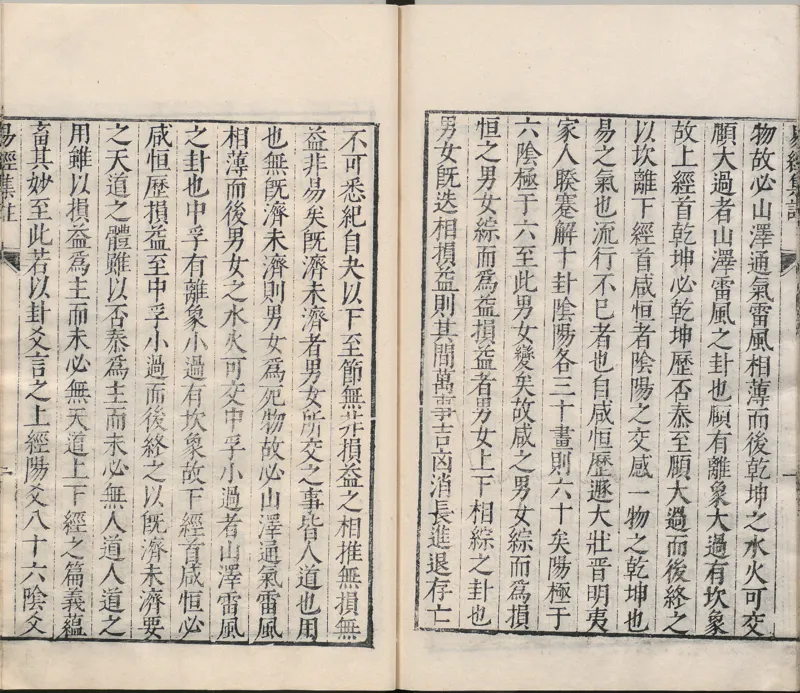 物故必山澤通氣雷風相薄而後乾坤之水火可交
頤大過者山澤雷風之卦也頤有離象大過有坎象
故上經首乾坤必乾坤歷否泰至頤大過而後終之
以坎離下經首咸恒者陰陽之交感一物之乾坤也
易之氣也流行不已者也自咸恒歷遯大壯晉明夷
家人睽蹇解十卦陰陽各三十畫則六十矣陽極于
六陰極于六至此男女變矣故咸之男女綜而為損
恒之男女綜而為益損益者男女上下相綜之卦也
男女既迭相損益則其間萬事吉凶消長進退存亡
不可悉紀自夬以下至節無非損益之相推無損無
益非易矣既濟未濟者男女所交之事皆人道也用
也無既濟未濟則男女為死物故必山澤通氣雷風
相薄而後男女之水火可交中孚小過者山澤雷風
之卦也中孚有離象小過有坎象故下經首咸恒必
咸恒歷損益至中孚小過而後終之以既濟未濟要
之天道之體雖以否泰為主而未必無人道人道之
用雖以損益為主而未必無天道上下經之篇義蘊
畜其妙至此若以卦爻言之上經陽爻八十六陰爻
易經集註